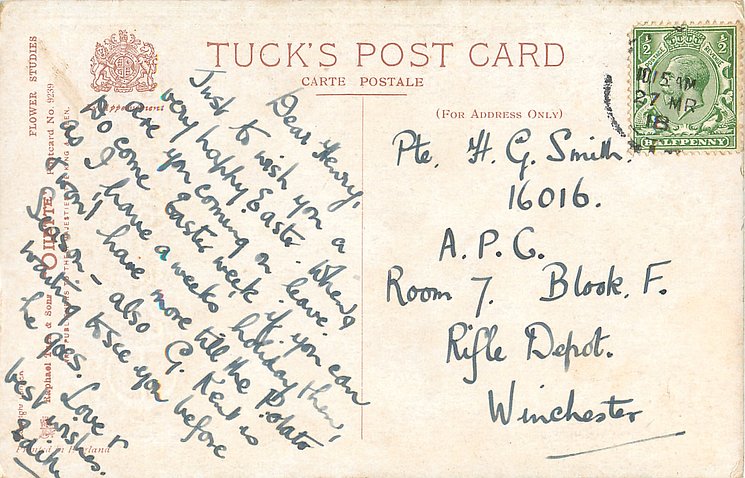 TUCK'S POST CARD
CARTE POSTALE
(FOR ADDRESS ONLY)
FLOWER STUDIES
Postcard No. 9239
"OILETTE"
Raphael Tuck & Sons
½ ½
10 15 AM
27 MR
18
HALFPENNY
Dear Henry,
Just to wish you a
very happy Easter. When
are you coming on leave.
Do come Easter week if you can
as I have a weeks holiday then,
& don't have more till the Potato
Season – also G. Kent is
waiting to see you before
he goes. Love &
best wishes.
Edith
Pte. H. G. Smith.
16016.
A. P. C.
Room 7. Block. F.
Rifle Depot.
Winchester
Printed in England